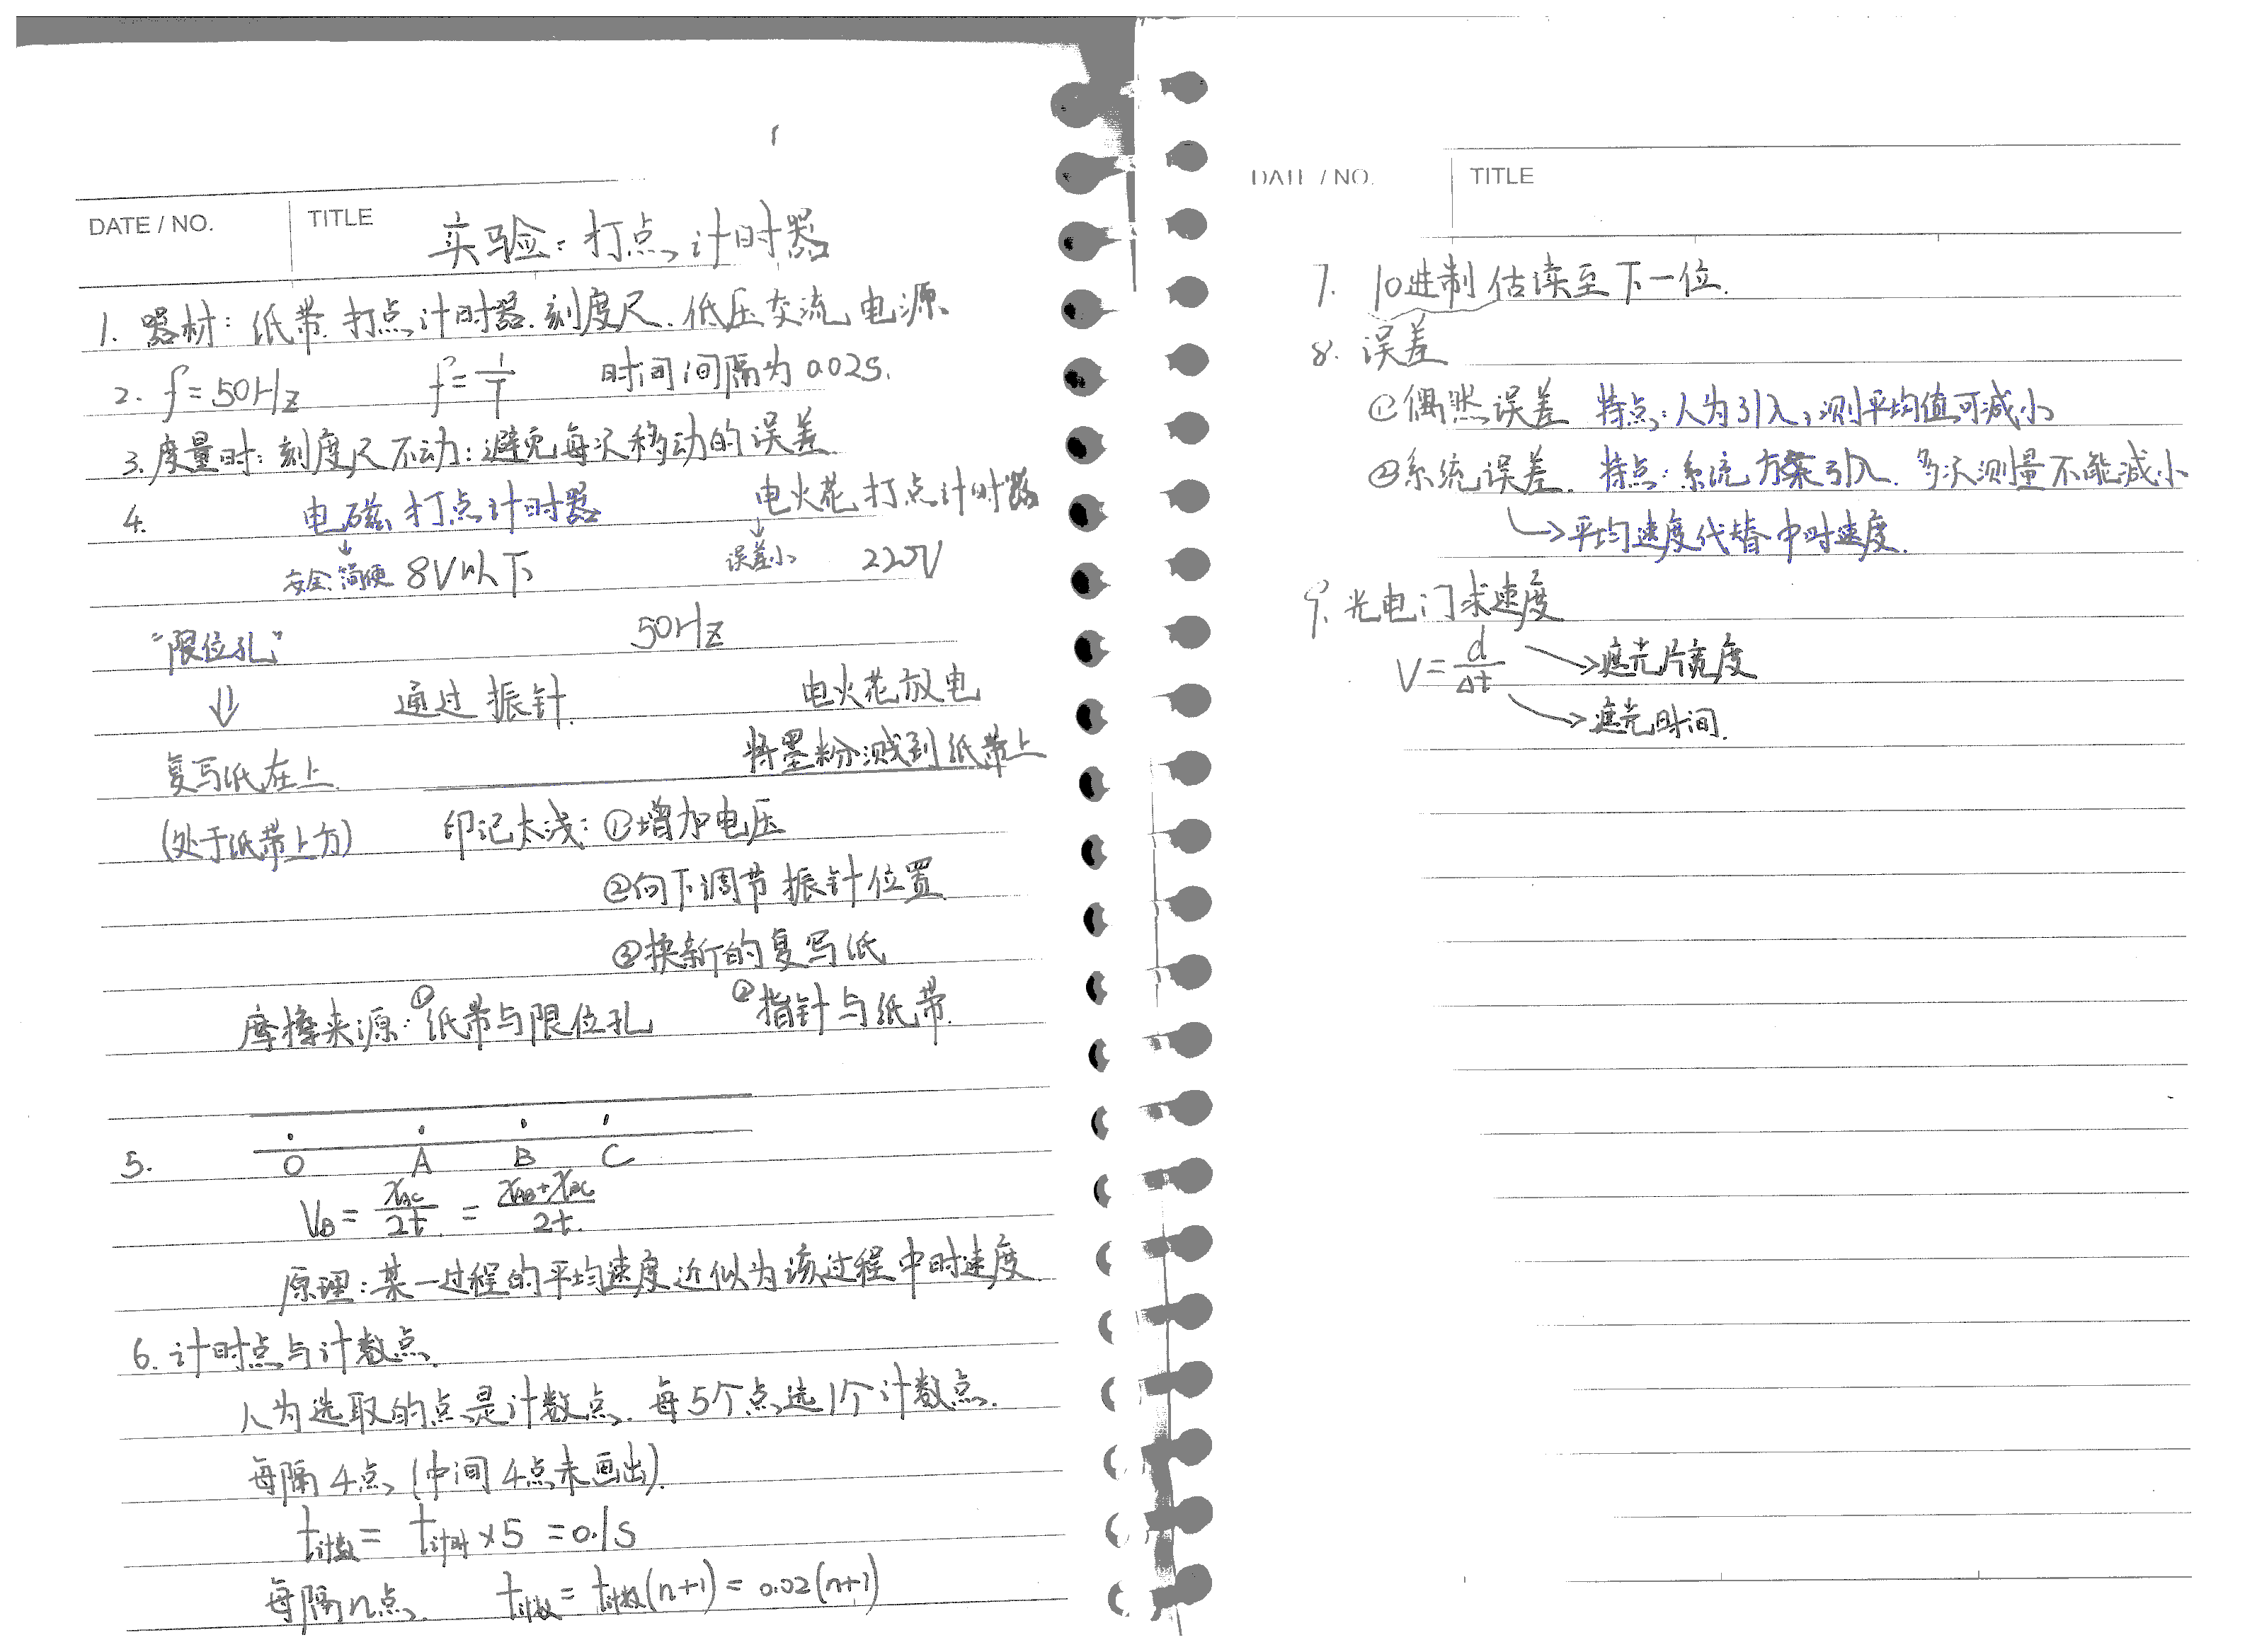 DATE / NO.
TITLE
实验：打点计时器
1. 器材：纸带．打点计时器．刻度尺．低压交流电源
2. f=50Hz f=1/T 时间间隔为0.02s.
3. 度量时：刻度尺不动：避免每次移动的误差.
4. 电磁打点计时器 电火花打点计时器
↓ ↓
安全.简便 8V以下 误差小 220V
"限位孔" 50Hz
⇓ 通过振针. 电火花放电
复写纸在上. 将墨粉溅到纸带上
(处于纸带上方) 印记太浅：①增加电压
②向下调节振针位置
③换新的复写纸
摩擦来源：①纸带与限位孔 ②指针与纸带.
5. O A B C
V_B = x_AC/2t = (x_AB+x_BC)/2t.
原理：某一过程的平均速度近似为该过程中时速度.
6. 计时点与计数点.
人为选取的点是计数点. 每5个点选1个计数点.
每隔4点 (中间4点未画出).
t计数 = t计时×5 =0.1s
每隔n点. t计数 = t计数(n+1) = 0.02(n+1)
DATE / NO.
TITLE
7. 10进制估读至下一位.
8. 误差
①偶然误差 特点：人为引入，测平均值可减小
②系统误差. 特点：系统方案引入. 多次测量不能减小
→平均速度代替中时速度.
9. 光电门求速度
V= d/Δt →遮光片宽度
→遮光时间.